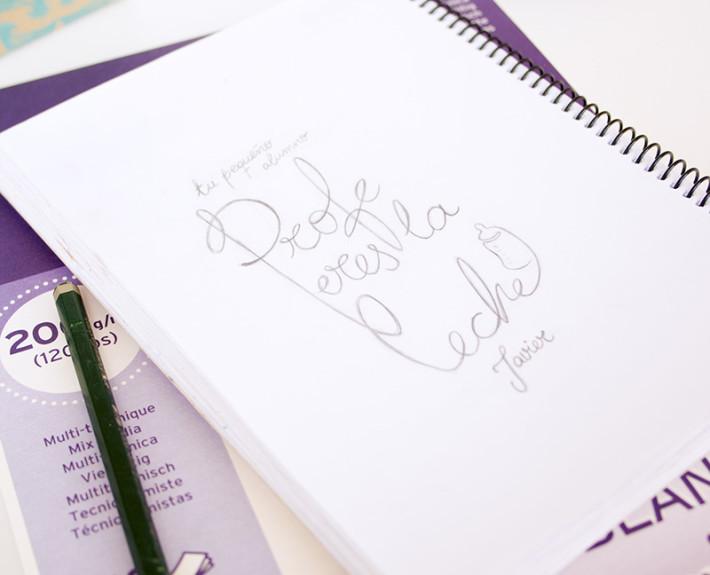 tu pequeño
+ alumno
Profe
eres la
leche
Javier
200 g/
(120
Multi-t nique
Mix dia
Multi nica
Vie ig
Multit nisch
Tecnic miste
Técnic nistas